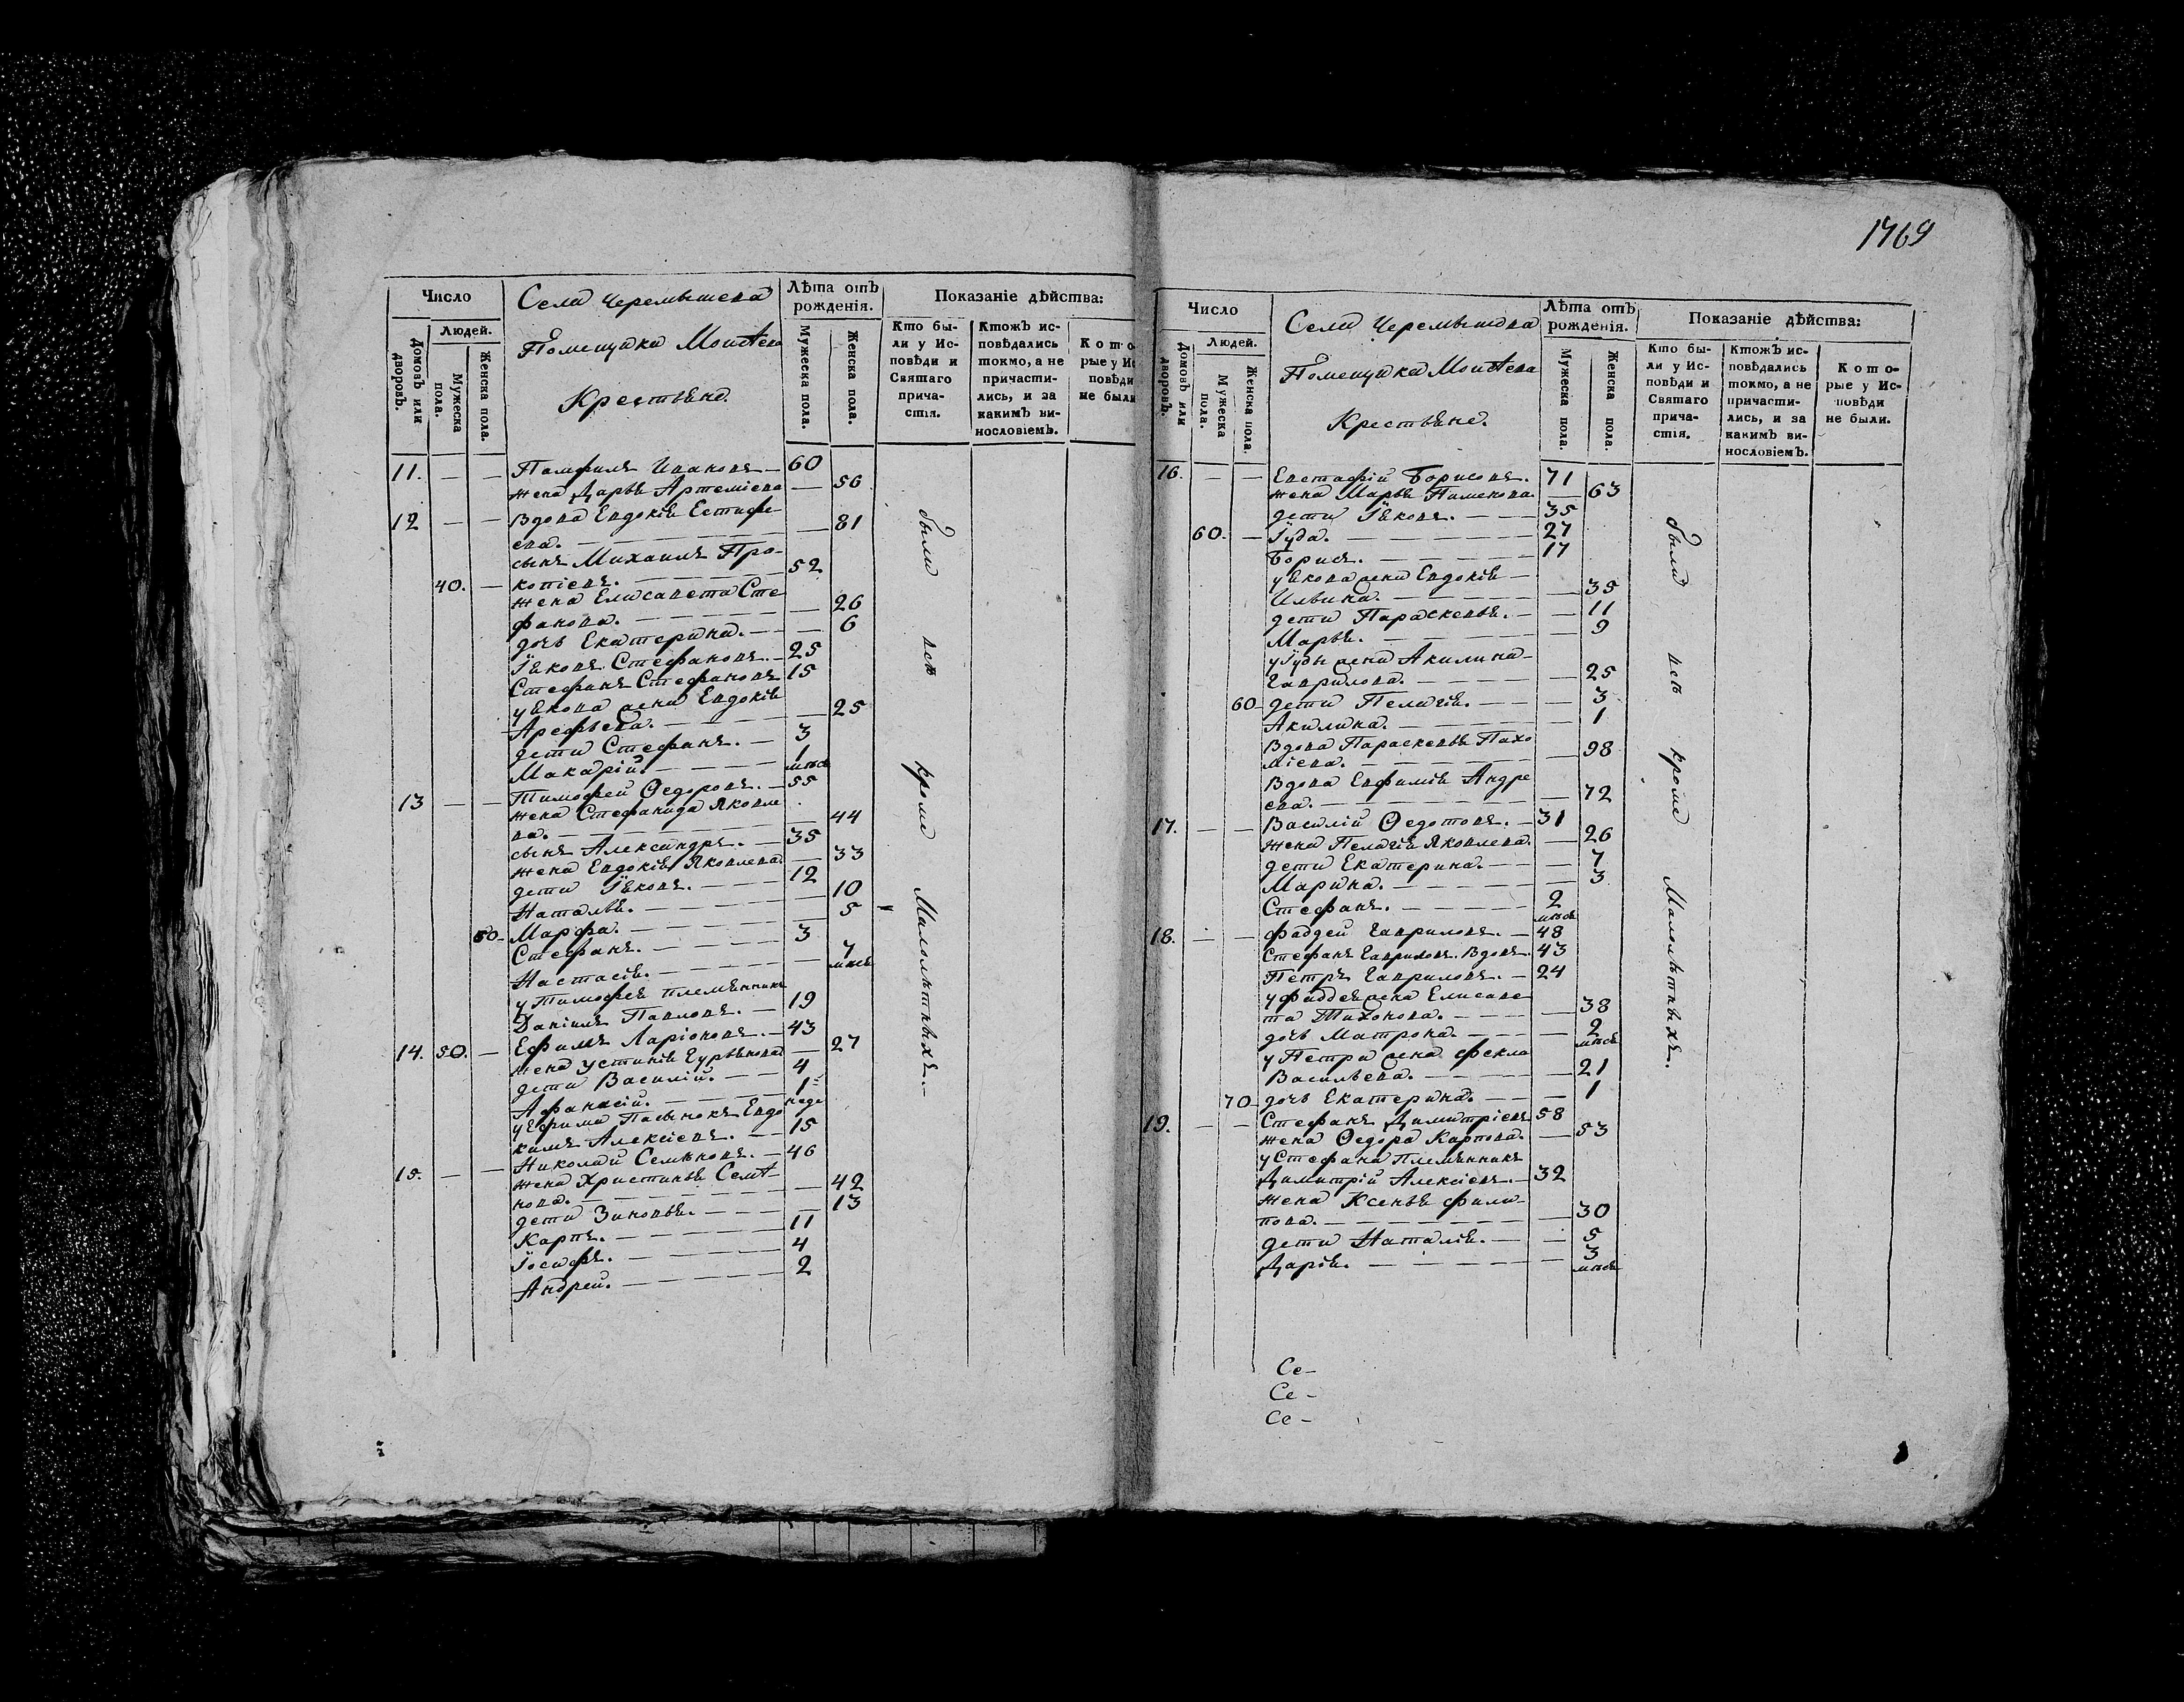 1769
Число
Людей.
Домовъ или дворовъ.
Мужеска пола.
Женска пола.
Села Черемышева
Помещика
Крестьяне.
Лѣта отъ рожденія.
Мужеска пола.
Женска пола.
Показаніе дѣйства:
Кто бы-
ли у Ис-
повѣди и
Святаго
прича-
стія.
Ктожъ ис-
повѣдались
токмо, а не
причасти-
лись, и за
какимъ ви-
нословіемъ.
Кото-
рые у Ис
повѣди
не были
11. — — Памфилъ Ивановъ — 60
жена Дарья Артеміева — 56
12 — — Вдова Евдокія Естифе-
ева. — 81
сынъ Михаилъ Про-
40. — копіевъ. — 52
жена Елисавета Сте
фанова. — 26
дочь Екатерина. — 6
Іяковъ Стефановъ. — 25
Стефанъ Стефановъ 15
у Якова жена Евдокія
Арефьева. — 25
дети Стефанъ. — 3
Макарій. — 1 мѣся
13 — — Тимофей Ѳедоровъ. — 55
жена Стефанида Яковле
ва. — 44
сынъ Александръ. — 35
жена Евдокія Яковлева. — 33
дети Іяковъ. — 12
Наталья. — 10
50 — Марфа. — 5
Стефанъ. — 3
Настасія. — 7 мѣся
у Тимофея племянникъ
Даніилъ Павловъ. — 19
14. 50. — Ефимъ Ларіоновъ. — 43
жена Устинія Гурьянова — 27
дети Василій. — 4
Афанасій. — 1 неде
у Ефима Пасынокъ Евдо
кимъ Алексіевъ. — 15
15. — — Николай Семеновъ. — 46
жена Христинья Семѣ-
нова. — 42
дети Зиновья. — 13
Карпъ. — 11
Іосифъ. — 4
Андрей. — 2
были всѣ кроме Малолѣтныхъ. —
Число
Людей.
Домовъ или дворовъ.
Мужеска пола.
Женска пола.
Села Черемышева
Помещика
Крестьяне.
Лѣта отъ
рожденія.
Мужеска пола.
Женска пола.
Показаніе дѣйства:
Кто бы-
ли у Ис-
повѣди и
Святаго
прича-
стія.
Ктожъ ис-
повѣдались
токмо, а не
причасти-
лись, и за
какимъ ви-
нословіемъ.
Кото-
рые у Ис-
повѣди
не были.
16. — — Евстафій Борисовъ. 71
жена Марья Пименова. — 63
дети Іяковъ. — 35
60. — Іуда. — 27
Борисъ. — 17
у Якова жена Евдокія —
Ильина. — 35
дети Параскевья. — 11
Марья. — 9
у Іуды жена Акилина —
Гаврилова. — 25
60 — дети Пелагія. — 3
Акилина. — 1
Вдова Параскевья Пахо
міева. — 98
Вдова Евфимія Андре
ева. — 72
17. — — Василій Ѳедотовъ. — 31
жена Пелагія Яковлева. — 26
дети Екатерина. — 7
Марина. — 3
Стефанъ. — 2 мѣся
18. — — Фаддей Гавриловъ. — 48
Стефанъ Гавриловъ. Вдовъ. 43
Петръ Гавриловъ. — 24
у Фаддея жена Елисаве
та Тихонова. — 38
дочь Матрона. — 2 мѣся
у Петра жена Фекла
Васильева. — 21
70 — дочь Екатерина. — 1
19. — — Стефанъ Димитріевъ 58
жена Ѳедора Карпова. — 53
у Стефана Племянникъ
Димитрій Алексіевъ. — 32
жена Ксенья Фили-
пова. — 30
дети Наталія. — 5
Дарія. — 3 мѣся
были всѣ кроме Малолѣтныхъ.
Се-
Се-
Се-